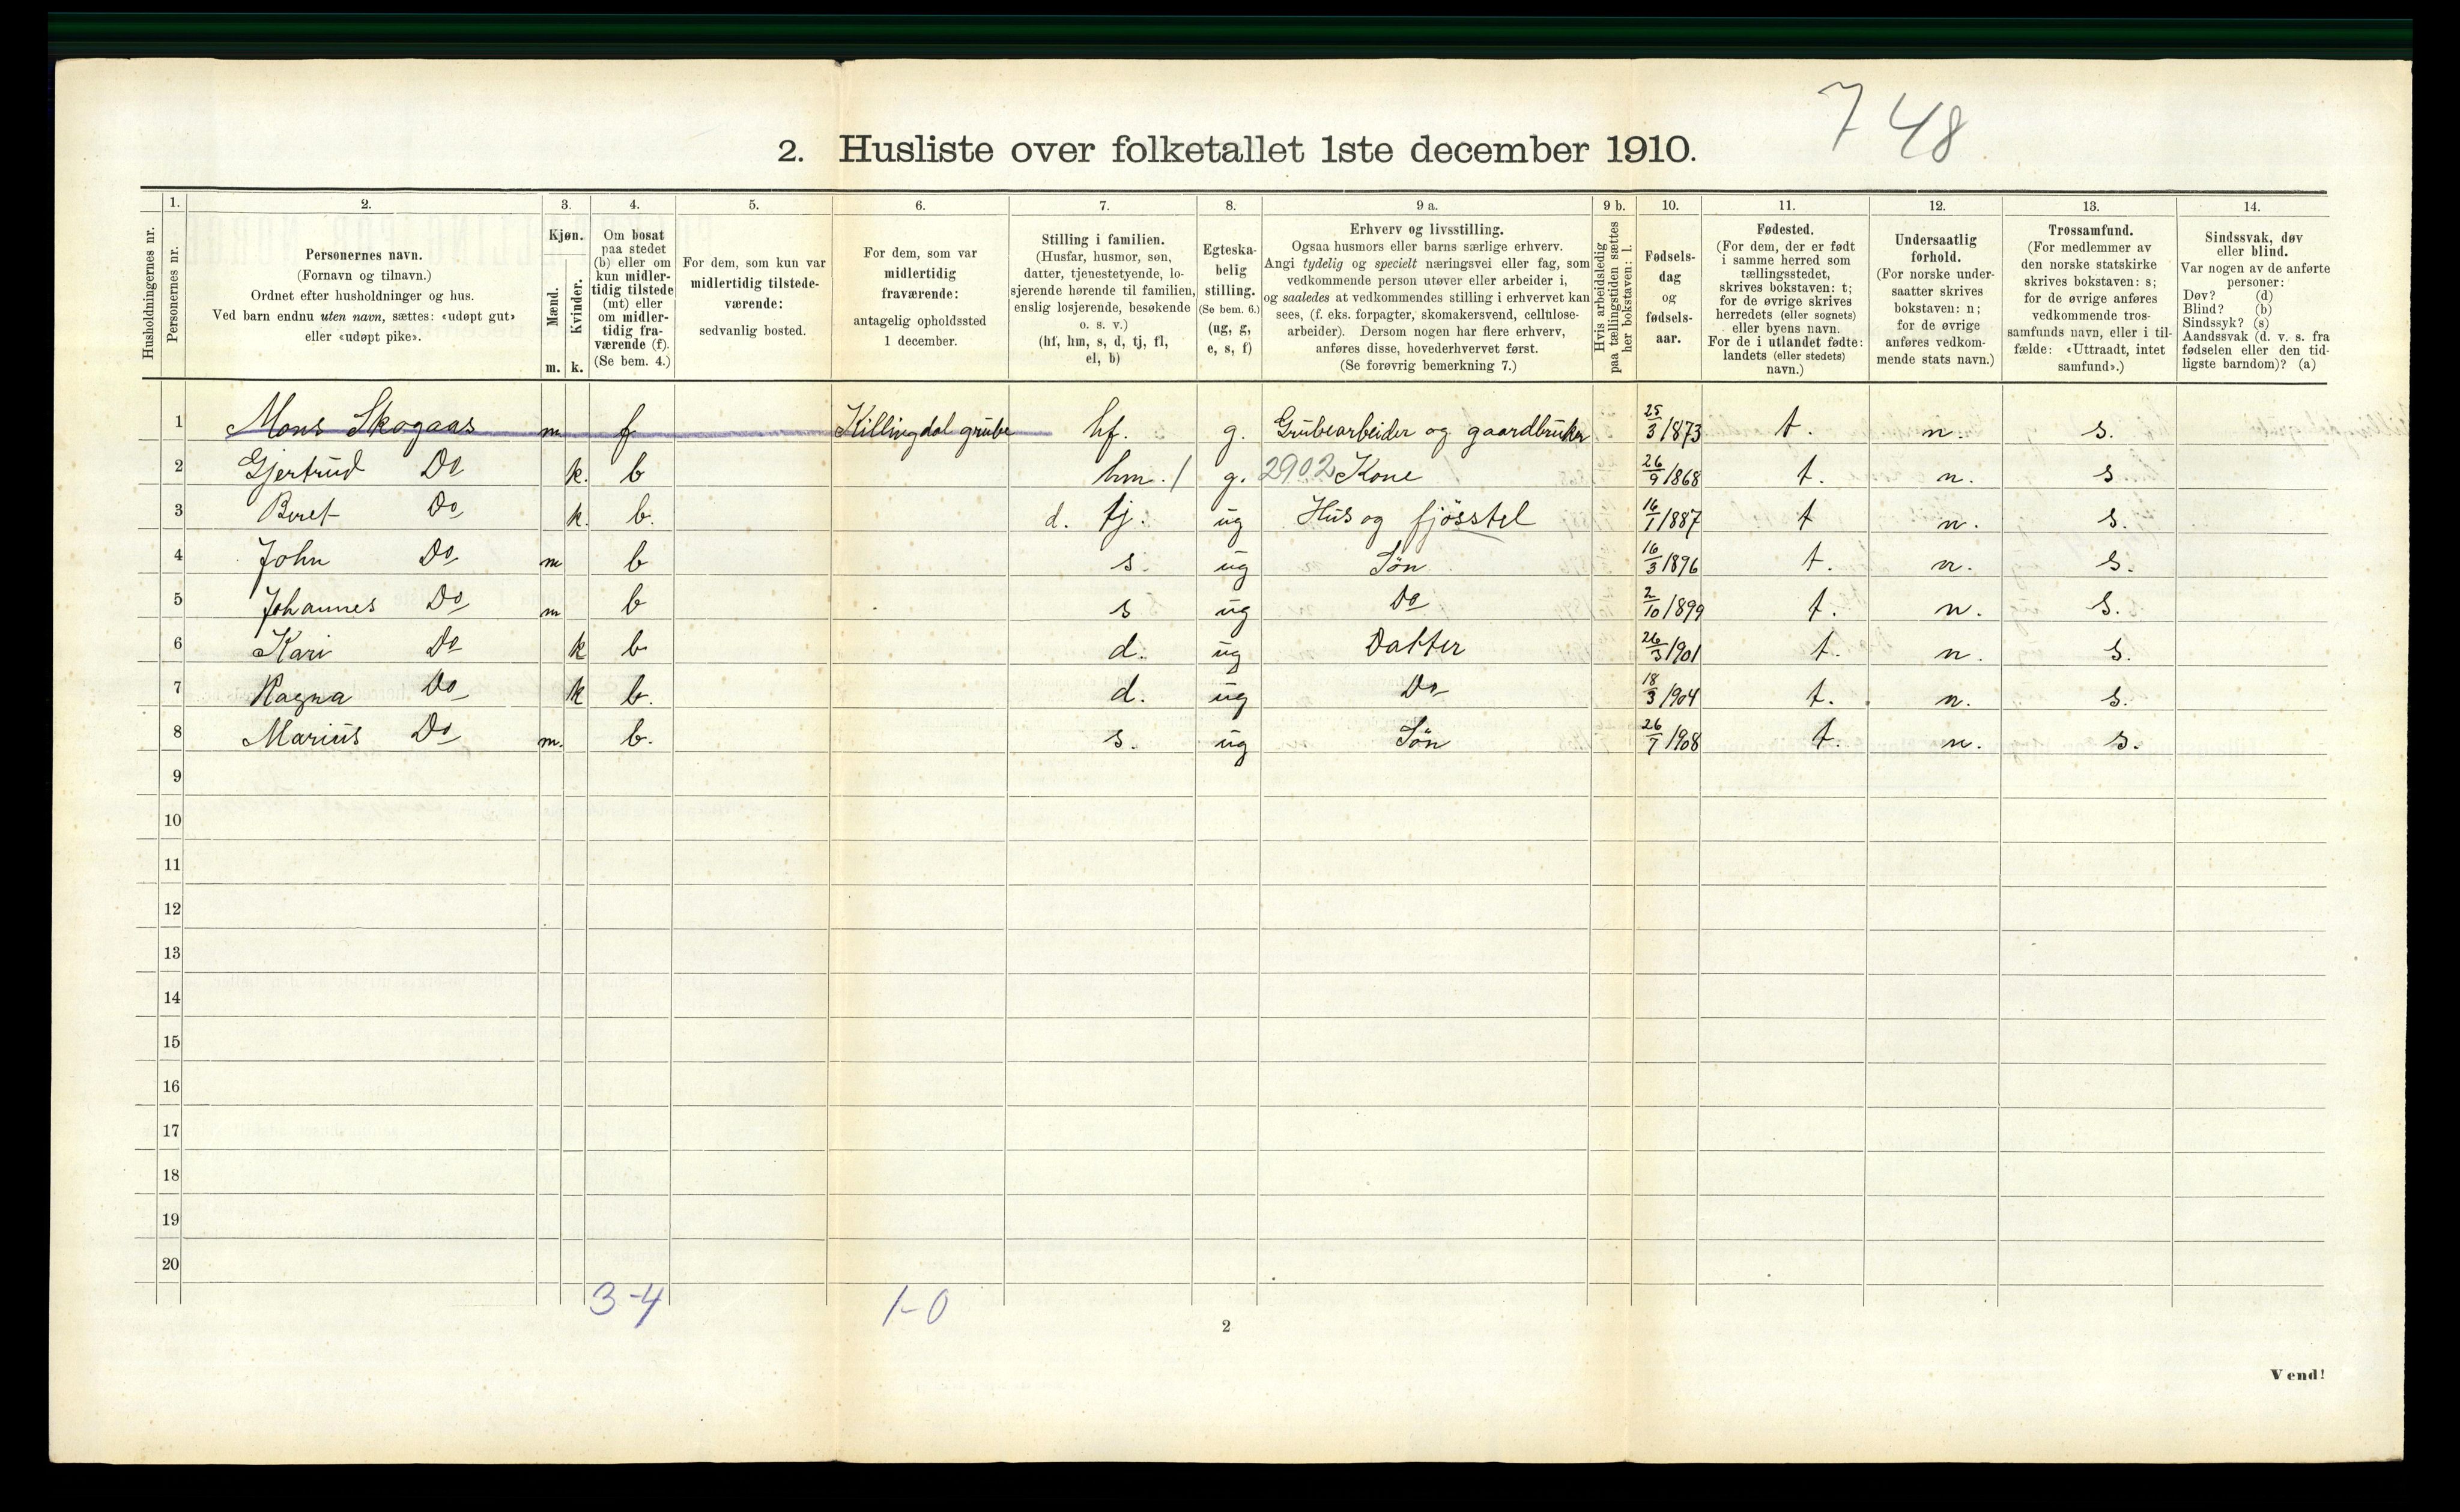 7 48
2. Husliste over folketallet 1ste december 1910.
Husholdningernes nr.
1.
Personernes nr.
2.
Personernes navn.
(Fornavn og tilnavn.)
Ordnet efter husholdninger og hus.
Ved barn endnu uten navn, sættes: «udøpt gut»
eller «udøpt pike».
3.
Kjøn.
Mænd.
Kvinder.
m. k.
4.
Om bosat
paa stedet
(b) eller om
kun midler-
tidig tilstede
(mt) eller
om midler-
tidig fra-
værende (f).
(Se bem. 4.)
5.
For dem, som kun var
midlertidig tilstede-
værende:
sedvanlig bosted.
6.
For dem, som var
midlertidig
fraværende:
antagelig opholdssted
1 december.
7.
Stilling i familien.
(Husfar, husmor, søn,
datter, tjenestetyende, lo-
sjerende hørende til familien,
enslig losjerende, besøkende
o. s. v.)
(hf, hm, s, d, tj, fl,
el, b)
8.
Egteska-
belig
stilling.
(Se bem. 6.)
(ug, g,
e, s, f)
9 a.
Erhverv og livsstilling.
Ogsaa husmors eller barns særlige erhverv.
Angi tydelig og specielt næringsvei eller fag, som
vedkommende person utøver eller arbeider i,
og saaledes at vedkommendes stilling i erhvervet kan
sees, (f. eks. forpagter, skomakersvend, cellulose-
arbeider). Dersom nogen har flere erhverv,
anføres disse, hovederhvervet først.
(Se forøvrig bemerkning 7.)
9 b.
Hvis arbeidsledig
paa tællingstiden sættes
her bokstaven: l.
10.
Fødsels-
dag
og
fødsels-
aar.
11.
Fødested.
(For dem, der er født
i samme herred som
tællingsstedet,
skrives bokstaven: t;
for de øvrige skrives
herredets (eller sognets)
eller byens navn.
For de i utlandet fødte:
landets (eller stedets)
navn.)
12.
Undersaatlig
forhold.
(For norske under-
saatter skrives
bokstaven: n;
for de øvrige
anføres vedkom-
mende stats navn.)
13.
Trossamfund.
(For medlemmer av
den norske statskirke
skrives bokstaven: s;
for de øvrige anføres
vedkommende tros-
samfunds navn, eller i til-
fælde: «Uttraadt, intet
samfund».)
14.
Sindssvak, døv
eller blind.
Var nogen av de anførte
personer:
Døv? (d)
Blind? (b)
Sindssyk? (s)
Aandssvak (d. v. s. fra
fødselen eller den tid-
ligste barndom)? (a)
1 Mons Skogaas m f Killingdal grube hf. g. Grubearbeider og gaardbruker 25/3 1873 t. n. s.
2 Gjertrud Do k. b hm. / g. 2902 Kone 26/9 1868 t. n. s
3 Beret Do k. b. d. tj. ug Hus og fjösstel 16/1 1887 t n. s.
4 John Do m b s. ug Sön 16/3 1896 t. n. s.
5 Johannes Do m b s ug Do 2/10 1899 t. n. s.
6 Kari Do k b d. ug Datter 26/3 1901 t. n. s.
7 Ragna Do k b. d. ug Do 18/3 1904 t. n. s.
8 Marius Do m. b. s. ug Sön 26/7 1908 t. n. s.
9
10
11
12
13
14
15
16
17
18
19
20
3-4 1-0
2
Vend!